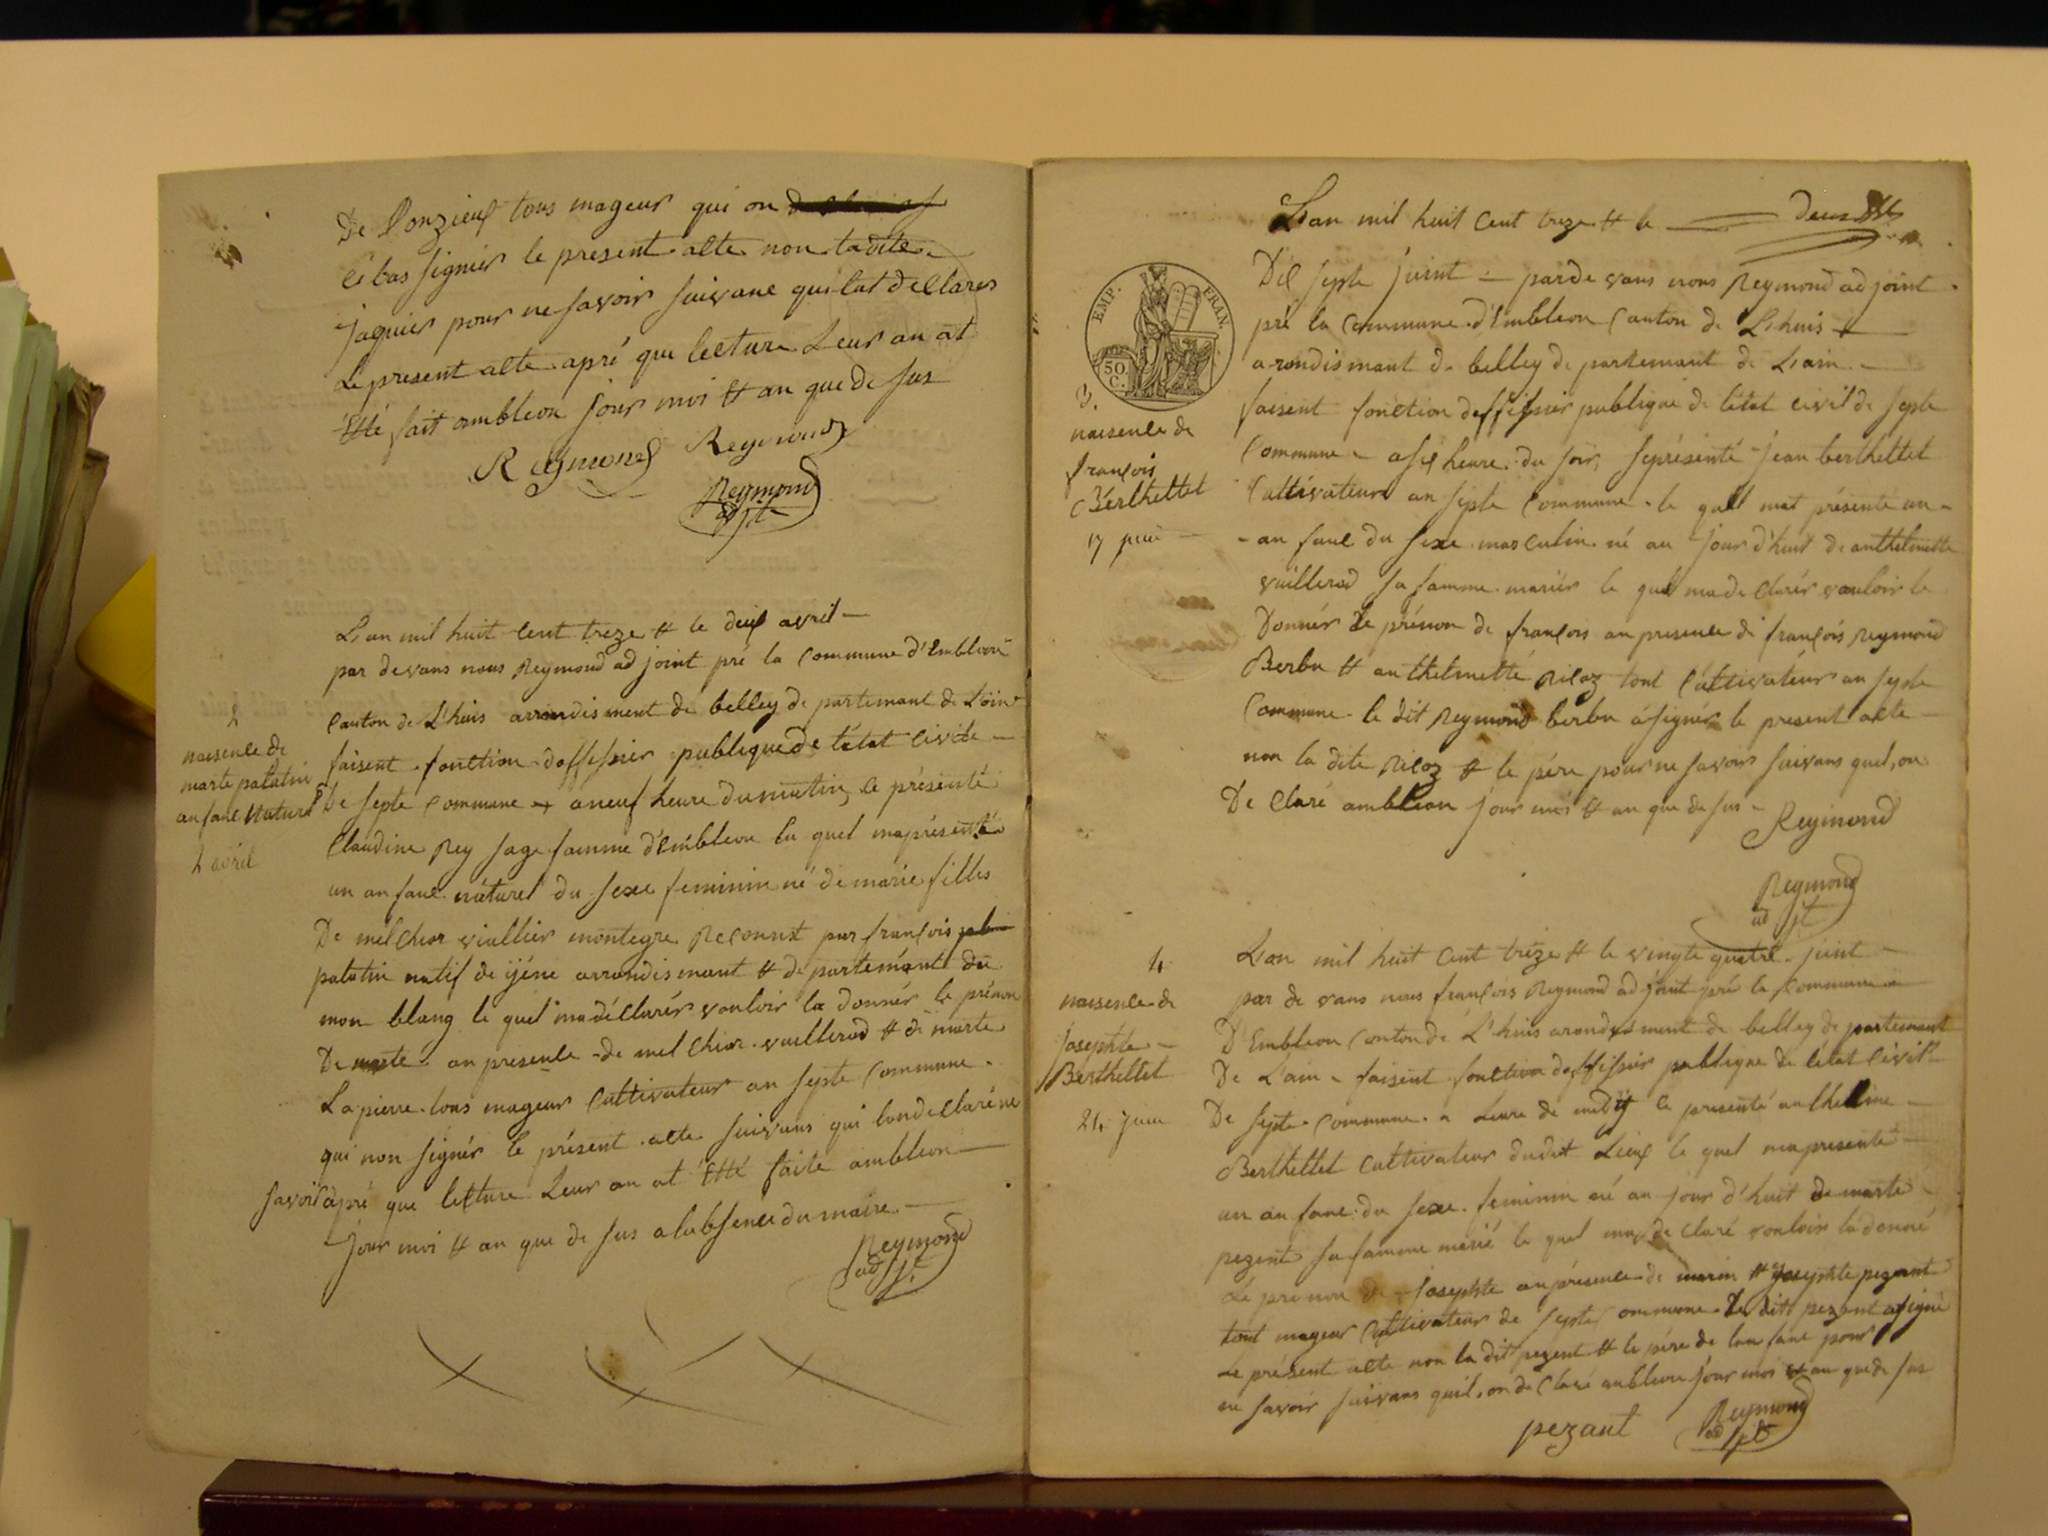 De Conzieux tous mageur qui on
cé bas signiér le present acte non ladite
jaquiér pour ne savoir suivant quil at declarés
Le present acte apré que lecture Leur an at
Etté fait ambleon jour moi & an que de sus
Reymond Reymond
Reymond
adjt
2
naisence de
marte palatin
an fanc Naturel
2 avril
L'an mil huit cent treze & le deux avril
par devans nous Reymond adjoint pré la Commune d'Embleon
Canton de L'huis arrondisment de belley de partemant de L'ain
faisent fonction doffissier publique de l'état civile
De septe Commune a neuf heure du matin, ce présenté
Claudine Rey sage famme d'Embleon la quel maprésenté
un an fanc náturel du sexe feminin né de marie filles
De melchior viallier montegre Reconnt par françois
palatin natif de yéne arrondismant & de partemant du
mon blang le quel ma déClarér vouloir la donnér le prénon
De marte an presence de melchior vuillerod & de marte
Lapierre tous mageur Cultivateur an septe Commune
qui non signér le présent acte suivans qui londeClaré ne
savoir apré que lecture Leur an at Etté faite ambleon
jour moi & an que de sus a labsence du maire
Reymond
adjt
L'an mil huit Cent treze & le
EMP. FRAN.
50.
C.
3.
naisence de
françois
Berthellet
17 juin
Dix septe juint pardevans nous Reymond adjoint
pré la Commune d'Embleon Canton de L'huis
arondismant de belley departemant de Lain
faisent fonction deffissier publique de létat civil de septe
Commune a six heure du soir, seprésenté jean berthellet
Cultivateur an septe Commune le quel mat présente un
an fanc du sexe masculin né au jour d'huit de anthelmette
vuillerod sa famme mariér le quel ma de Clarér vouloir le
Donnér le prénon de françois an presence de françois Reymond
Berbu & anthelmette Ricoz tout Cultivateur an septe
Commune le dit Reymond berbu á signér le present acte
non la dite Ricoz & le pére pour ne savoir suivans quil, on
De Claré ambleon jour mois & an que de sus
Reymond
Reymond
adjt
4
naisence de
josephte
Berthellet
24 juin
L'an mil huit Cent tréze & le vingte quatre juint
par de vans nous françois Reymond adjoint pré la Commune
D'Embleon Canton de L'huis arondisment de belley de partemant
De L'ain faisent fonction deffissier publique de létat Civil
De septe Commune a Leure de midy ce presenté anthelme
Berthellet Cultivateur dudit Lieux le quel mapresenté
un an fanc du sexe feminin né au jour d'huit de marte
pezent sa famme marié le quel ma de Claré vouloir la donné
Le prénon de josephte an présence de marin & josephte pezant
tout mageur Cultivateur de septe Commune Le dit pezant a signé
Le présent acte non la dit pezent & le pére de lan fanc pour
ne savoir suivans quil, on de Claré ambleon jour mois & an que de sus
pezant
Reymond
adjt